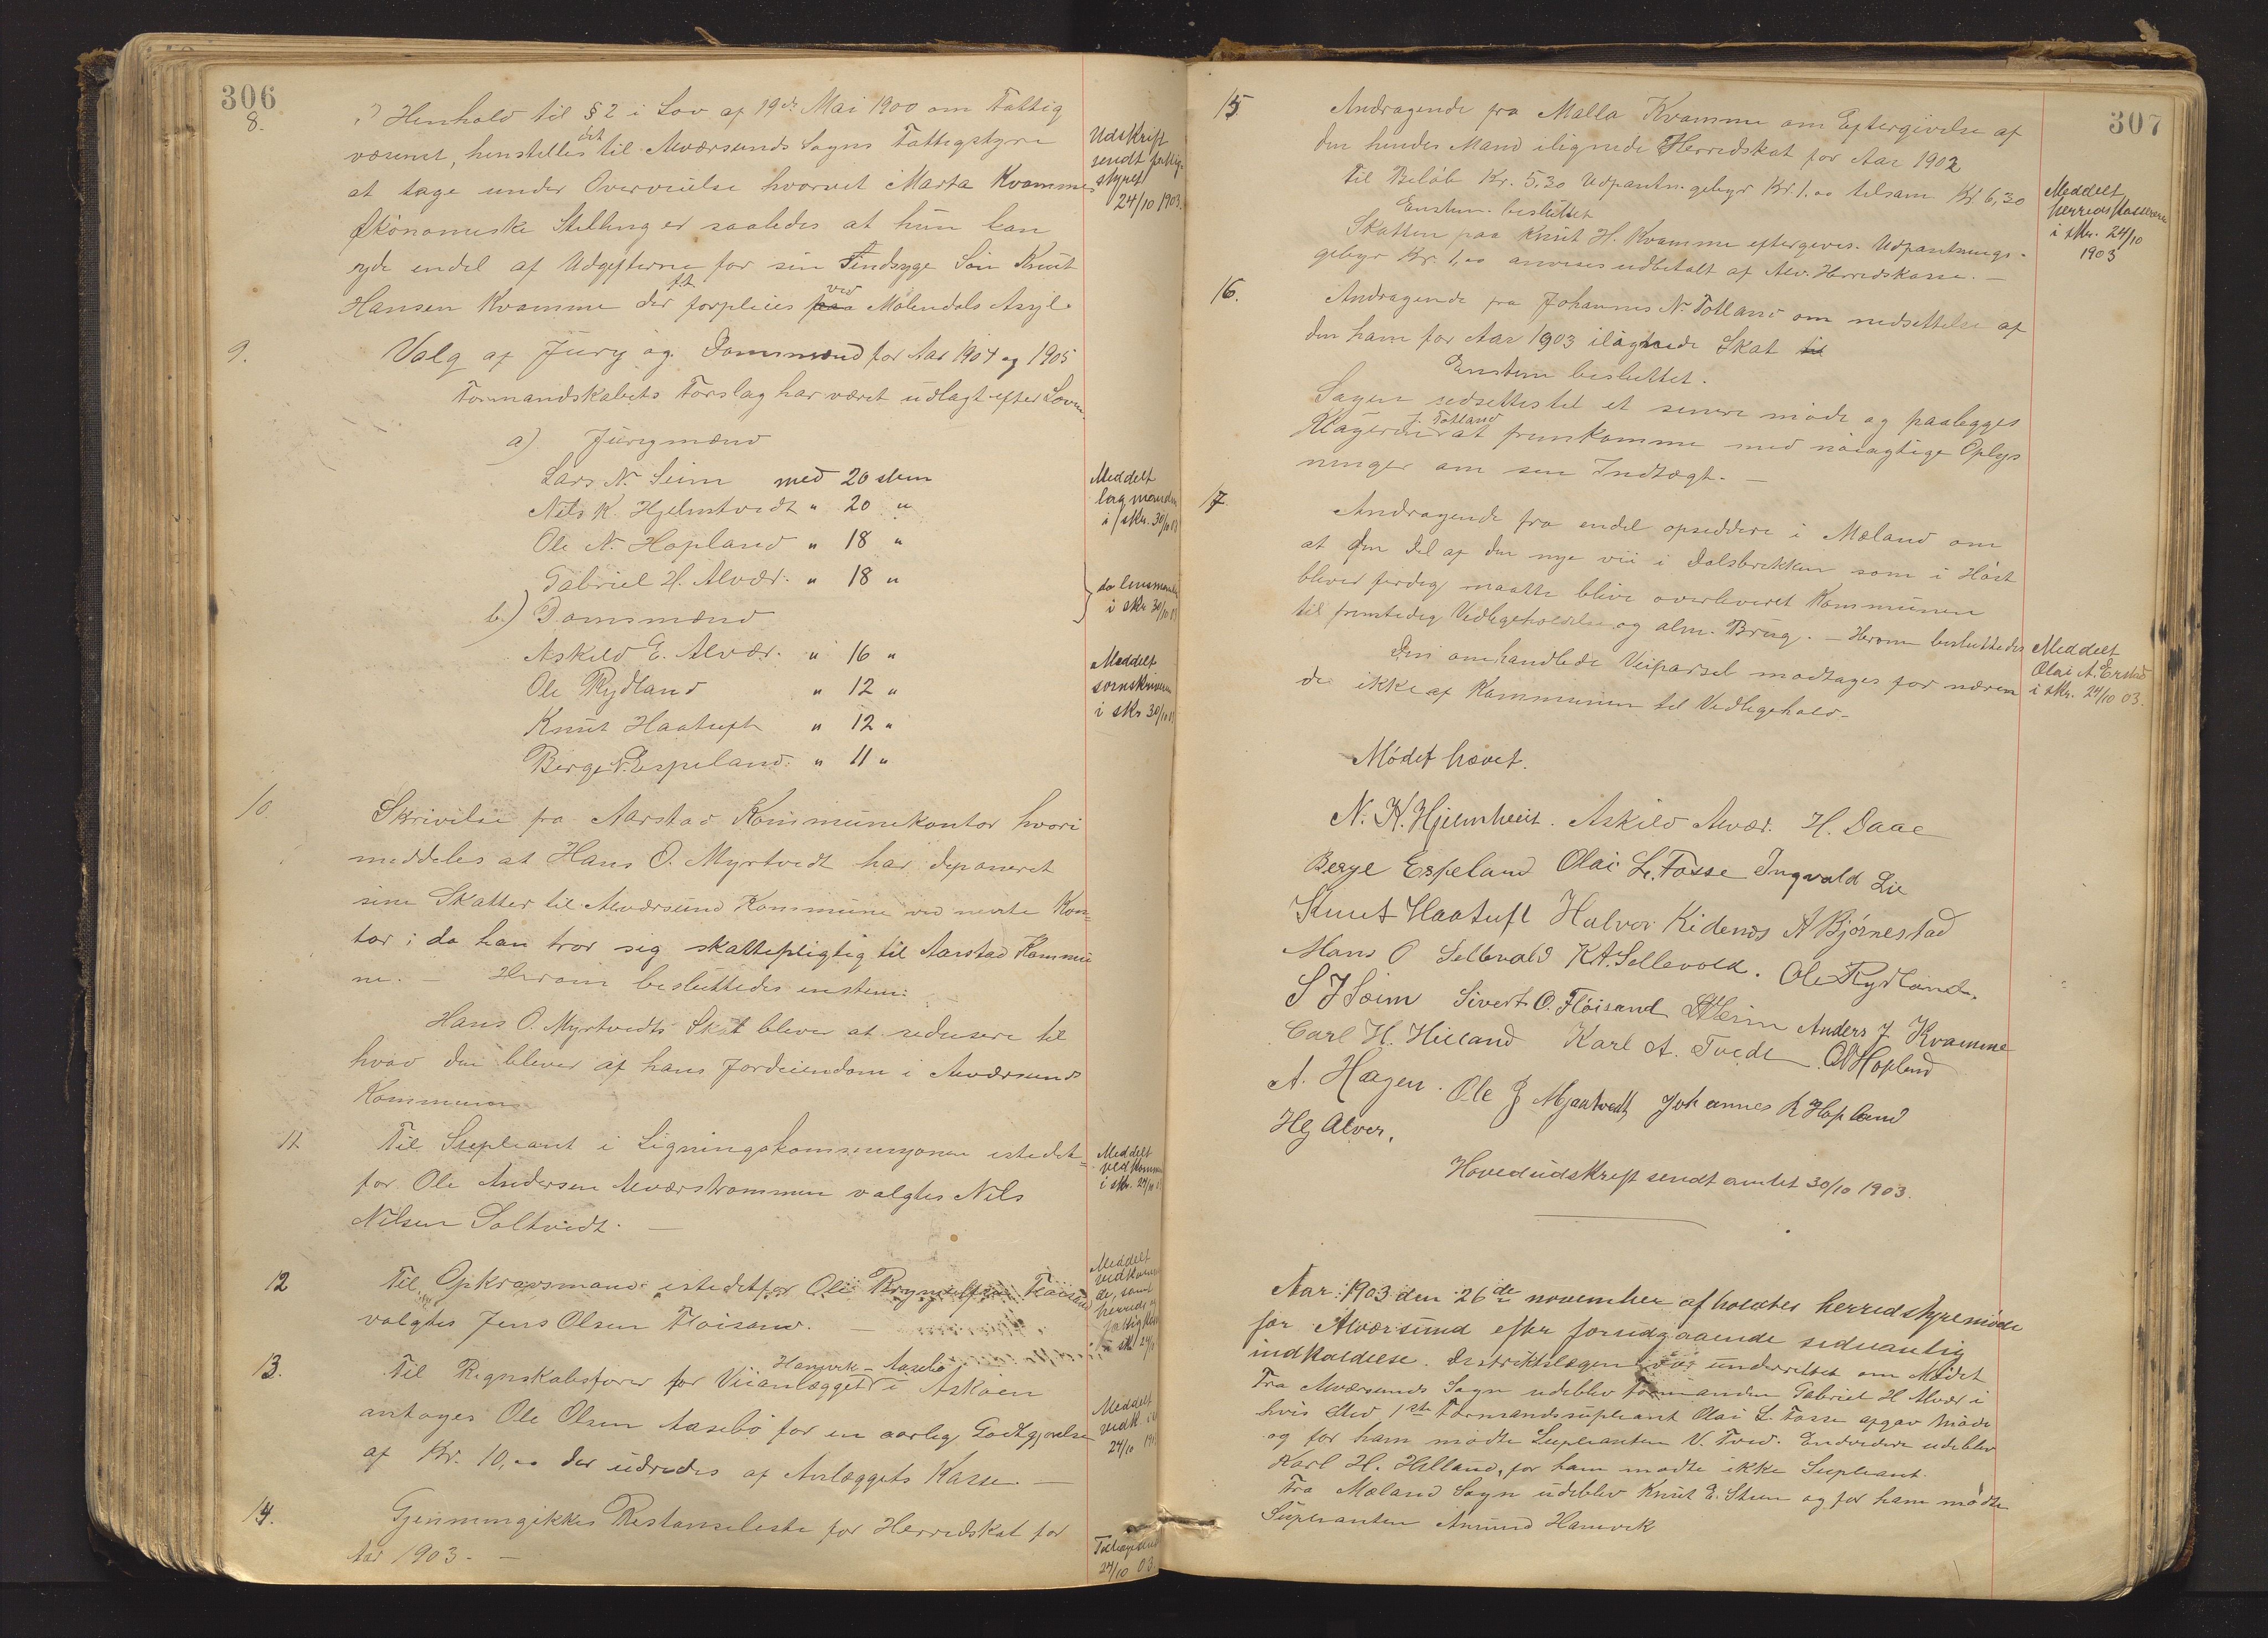 306
8.
I Henhold til § 2 i Lov af 19de Mai 1900 om Fattig
væsenet, henstilles det til Alværsunds Sogns Fattigstyre
at tage under Overveielse hvorvet Marta Kvammes
Økonomiske Stilling er saaledes at hun kan
yde endel af Udgifterne for sin Sindsyge Søn Knut
Hansen Kvamme der f.t. forpleies paa ved Möllendals Asyl.
Udskrift
sendt fattig-
styret
24/10 1903.
9.
Valg af Jury og Domsmænd for Aar 1904 og 1905
Formandskabets Forslag har været udlagt efter Loven.
a) Jurymænd
Lars N. Seim med 20 stem
Nils K. Hjelmtvedt " 20 "
Ole N. Hopland " 18 "
Gabriel H. Alvær. " 18 "
b.) Domsmænd
Askild E. Alvær. " 16 "
Ole Rydland " 12 "
Knut Haatuft " 12 "
Berge N. Espeland. " 11 "
Meddelt
lagmanden
i skr. 30/10 03
do lensmanden
i skr 30/10 03
Meddelt
sorenskriveren
i skr 30/10 03
10.
Skrivelse fra Aarstad Kommunekontor hvori
meddeles at Hans O. Myrtvedt har deponeret
sine Skatter til Alværsund Kommune ved nevnte Kon=
tor; da han tror sig skattepligtig til Aarstad Kommu
ne. — Herom besluttedes enstem:
Hans O. Myrtvedts Skat bliver at redusere til
hvad den bliver af hans Jordeiendom i Alværsund
Kommune
11.
Til Supleant i Ligningskommisjonen istedet=
for Ole Andersen Alværstrømmen valgtes Nils
Nilsen Soltvedt. —
Meddelt
vedkomm
i skr. 24/10 03
12
Til Opkrævsmand istedetfor Ole Brynjelfsen Fløisand
valgtes Jens Olsen Fløisand. —
Meddelt
vedkommen
de, samt
herreds og
fattigkass
i skr 24/10
13.
Til Regnskabsfører for Veianlægget Hanevik - Aasebø i Askøen
antages Ole Olsen Aasebø for en aarlig Godtgjørelse
af Kr. 10,00 der udredes af Anlæggets Kasse. —
Meddelt
vedk
24/10 1903
14.
Gjennemgikkes Restanseliste for Herredskat for
Aar 1903. —
24/10 03.
307
15
Andragende fra Malla Kvamme om Eftergivelse af
den hendes Mand ilignede Herredskat for Aar 1902
til Beløb Kr. 5,30 Udpantn.gebyr Kr. 1.00 tilsam Kr 6,30
Enstem. besluttet
Skatten paa Knut H. Kvamme eftergives. Udpantnings-
gebyr Kr. 1,00 anvises udbetalt af Alv. Herredskasse. —
Meddelt
herredskasseren
i skr. 24/10
1903
16.
Andragende fra Johannes N. Totland om nedsettelse af
den ham for Aar 1903 ilagnede Skat til
Enstem besluttet.
Sagen udsettes til et senere møde og paalegges
Klageren J. Totland at fremkomme med nøiagtige Oplys
ninger om sin Indtægt. —
17
Andragende fra endel opsiddere i Mæland om
at den Del af den nye vei i Dalsbrekken som i Høst
blever ferdig maatte blive overleveret Kommunen
til fremtidig Vedligeholdelse og alm. Brug. — Herom besluttedes
Den omhandlede Veiparsel modtages for næren
de ikke af Kommunen til Vedligehold.
Meddelt
Olai A. Erstad
i skr. 24/10 03.
Mødet hævet.
N. K. Hjelmtveit. Askild Alvær. H. Daae
Berge Espeland Olai L. Fosse Ingvald Lie
Knut Haatuft Halvor Kidenes A Bjørnestad
Hans O Sellevold K A. Sellevold. Ole Rydland.
S J Seim Sivert O. Fløisand Anders J. Kvamme
Carl H. Hilland Karl A. Tvedt O N Hopland
A. Hagen. Ole J Mjaatvedt Johannes L Hopland
Hg Alver.
Hovedudskrift sendt amtet 30/10 1903.
Aar: 1903 den 26de november afholdtes herredstyremøde
for Alværsund efter forudgaaende sedvanlig
indkaldelse. Distriktslægen var underrettet om Mødet
Fra Alværsunds Sogn udeblev Formanden Gabriel H Alvær i
hvis Sted 1ste Formandssupleant Olai L. Fosse afgav Møde
og for ham mødte Supleanten N. Tved. Endvidere udeblev
Karl H. Hilland, for ham mødte ikke Supleant.
Fra Mæland Sogn udeblev Knut E. Steen og for ham mødte
Supleanten Amund Hanevik